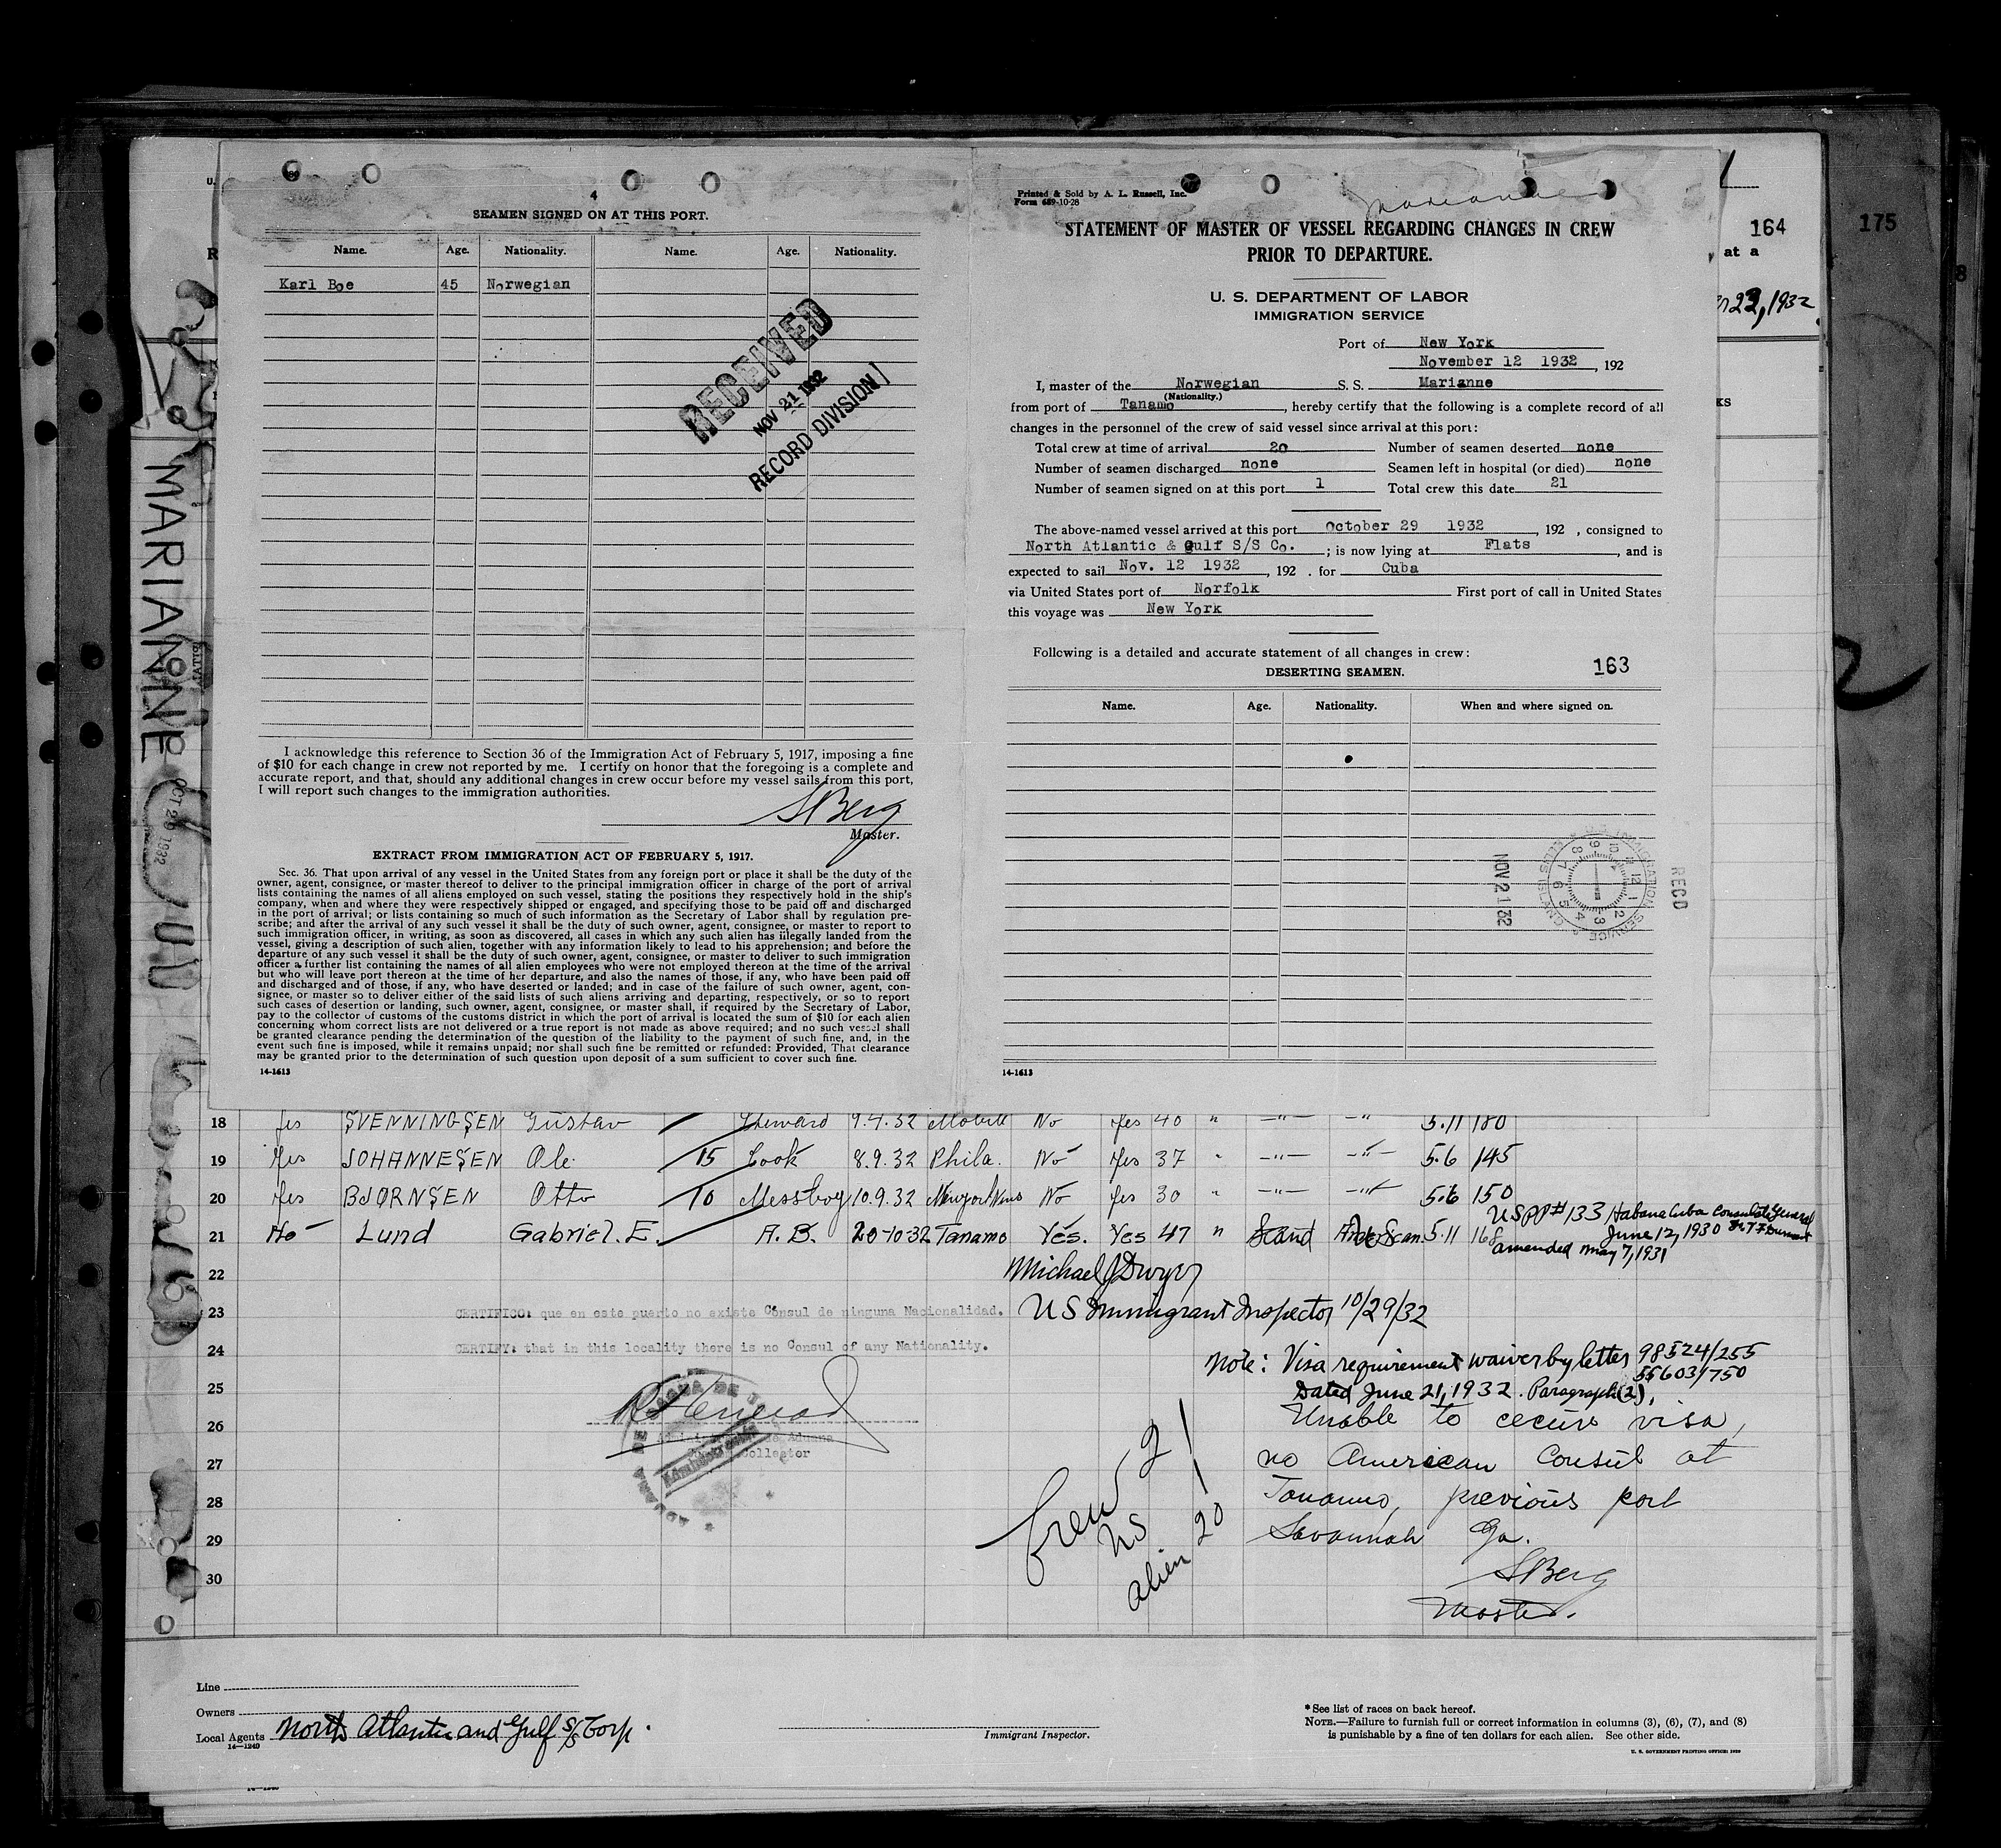 4
SEAMEN SIGNED ON AT THIS PORT.
Name. Age. Nationality. Name. Age. Nationality.
Karl Boe 45 Norwegian
RECEIVED
NOV 21 1932
RECORD DIVISION
I acknowledge this reference to Section 36 of the Immigration Act of February 5, 1917, imposing a fine
of $10 for each change in crew not reported by me. I certify on honor that the foregoing is a complete and
accurate report, and that, should any additional changes in crew occur before my vessel sails from this port,
I will report such changes to the immigration authorities.
SBerg
Master.
EXTRACT FROM IMMIGRATION ACT OF FEBRUARY 5, 1917.
Sec. 36. That upon arrival of any vessel in the United States from any foreign port or place it shall be the duty of the
owner, agent, consignee, or master thereof to deliver to the principal immigration officer in charge of the port of arrival
lists containing the names of all aliens employed on such vessel, stating the positions they respectively hold in the ship's
company, when and where they were respectively shipped or engaged, and specifying those to be paid off and discharged
in the port of arrival; or lists containing so much of such information as the Secretary of Labor shall by regulation pre-
scribe; and after the arrival of any such vessel it shall be the duty of such owner, agent, consignee, or master to report to
such immigration officer, in writing, as soon as discovered, all cases in which any such alien has illegally landed from the
vessel, giving a description of such alien, together with any information likely to lead to his apprehension; and before the
departure of any such vessel it shall be the duty of such owner, agent, consignee, or master to deliver to such immigration
officer a further list containing the names of all alien employees who were not employed thereon at the time of the arrival
but who will leave port thereon at the time of her departure, and also the names of those, if any, who have been paid off
and discharged and of those, if any, who have deserted or landed; and in case of the failure of such owner, agent, con-
signee, or master so to deliver either of the said lists of such aliens arriving and departing, respectively, or so to report
such cases of desertion or landing, such owner, agent, consignee, or master shall, if required by the Secretary of Labor,
pay to the collector of customs of the customs district in which the port of arrival is located the sum of $10 for each alien
concerning whom correct lists are not delivered or a true report is not made as above required; and no such vessel shall
be granted clearance pending the determination of the question of the liability to the payment of such fine, and, in the
event such fine is imposed, while it remains unpaid; nor shall such fine be remitted or refunded: Provided, That clearance
may be granted prior to the determination of such question upon deposit of a sum sufficient to cover such fine.
14-1613
Printed & Sold by A. L. Russell, Inc.
Form 689-10-28
Marianne
STATEMENT OF MASTER OF VESSEL REGARDING CHANGES IN CREW
PRIOR TO DEPARTURE.
U. S. DEPARTMENT OF LABOR
IMMIGRATION SERVICE
Port of New York
November 12 1932, 192
I, master of the Norwegian S. S. Marianne
(Nationality.)
from port of Tanamo, hereby certify that the following is a complete record of all
changes in the personnel of the crew of said vessel since arrival at this port:
Total crew at time of arrival 20 Number of seamen deserted none
Number of seamen discharged none Seamen left in hospital (or died) none
Number of seamen signed on at this port 1 Total crew this date 21
The above-named vessel arrived at this port October 29 1932, 192 , consigned to
North Atlantic & Gulf S/S Co. ; is now lying at Flats, and is
expected to sail Nov. 12 1932, 192 . for Cuba
via United States port of Norfolk First port of call in United States
this voyage was New York
Following is a detailed and accurate statement of all changes in crew:
DESERTING SEAMEN. 163
Name. Age. Nationality. When and where signed on.
RECD
NOV 21 32
IMMIGRATION SERVICE
14-1613
164
175
at a
23, 1932
KS
MARIANNE
OCT 29 1932
18 Yes SVENNINGSEN Gustav Steward 9.4.32 Mobile No Yes 40 " -"- -"- 5.11 180
19 Yes JOHANNESEN Ole 15 Cook 8.9.32 Phila. No Yes 37 " -"- -"- 5.6 145
20 Yes BJØRNSEN Otto 10 Messboy 10.9.32 No Yes 30 " -"- -"- 5.6 150
21 No Lund Gabriel. E. A.B. 20-10-32 Tanamo Yes. Yes 47 " Scand Scan. 5.11 168
USPP#133 Habana Cuba Consulate General
June 12, 1930
amended May 7, 1931
22 Michael J Dwyer
23 CERTIFICO: que en este puerto no existe Cónsul de ninguna Nacionalidad. US Immigrant Inspector 10/29/32
24 CERTIFY: that in this locality there is no Consul of any Nationality.
Note: Visa requirement waiver by letter 98524/255
55603/750
25 Dated June 21, 1932. Paragraph (2).
26 Unable to cecure visa,
Aduana
Collector
27 no American Consul at
28 Tanamo, previous port
29 Savannah Ga.
30 SBerg
Master.
Crew 21
US 1
alien 20
Line
Owners
Local Agents North Atlantic and Gulf S/S Corp.
14-1240
Immigrant Inspector.
* See list of races on back hereof.
NOTE.—Failure to furnish full or correct information in columns (3), (6), (7), and (8)
is punishable by a fine of ten dollars for each alien. See other side.
U. S. GOVERNMENT PRINTING OFFICE: 1929